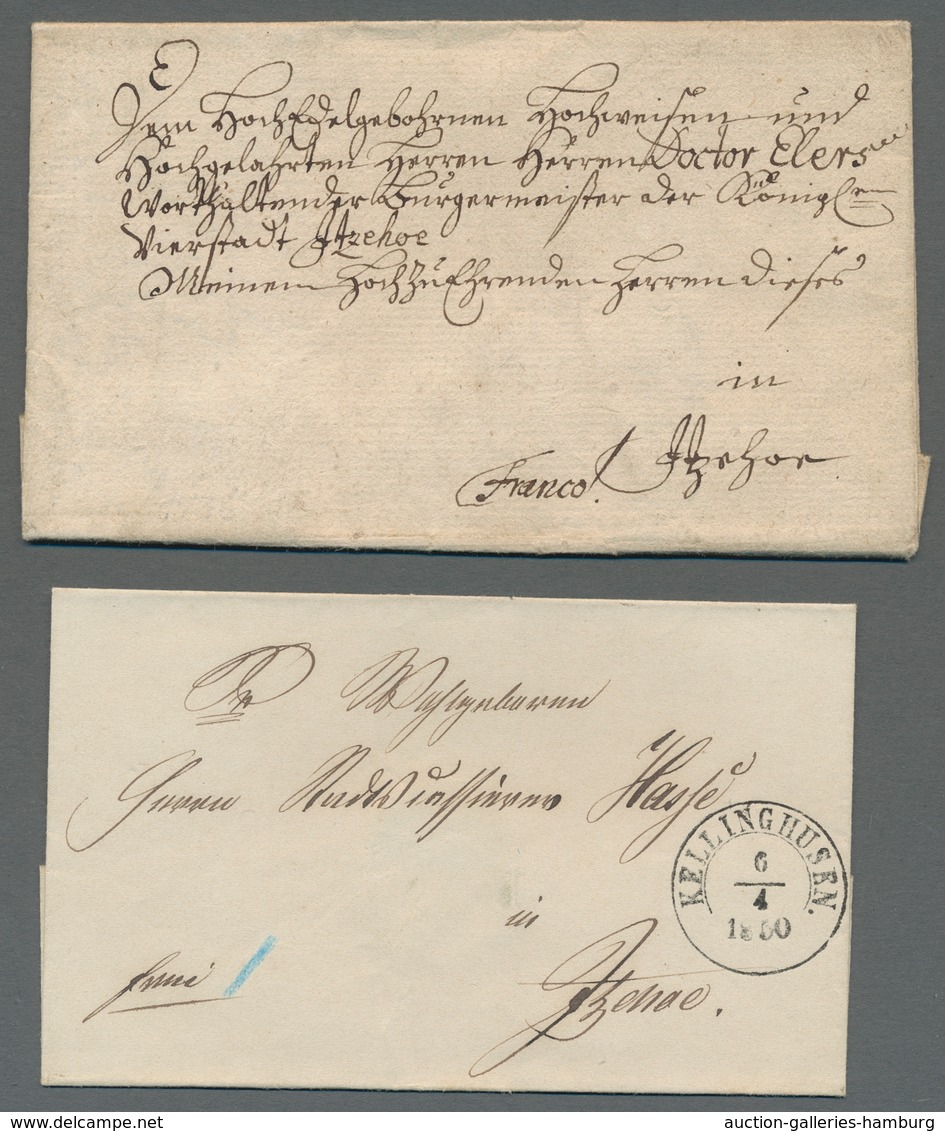 Dem HochEdelgebohrnen Hochweisen und
Hochgelahrten Herren Herren Doctor Elers
Worthaltender Bürgermeister der Königl
Vierstadt Itzehoe
Meinem HochzuEhrenden Herren dieses
in
Franco! Itzehoe
Wohlgeboren
Herrn Stadtcassierer Hasse
in
frei
Itzehoe.
KELLINGHUSEN.
6
4
1850
www.delcampe.net
auction-galleries-hamburg